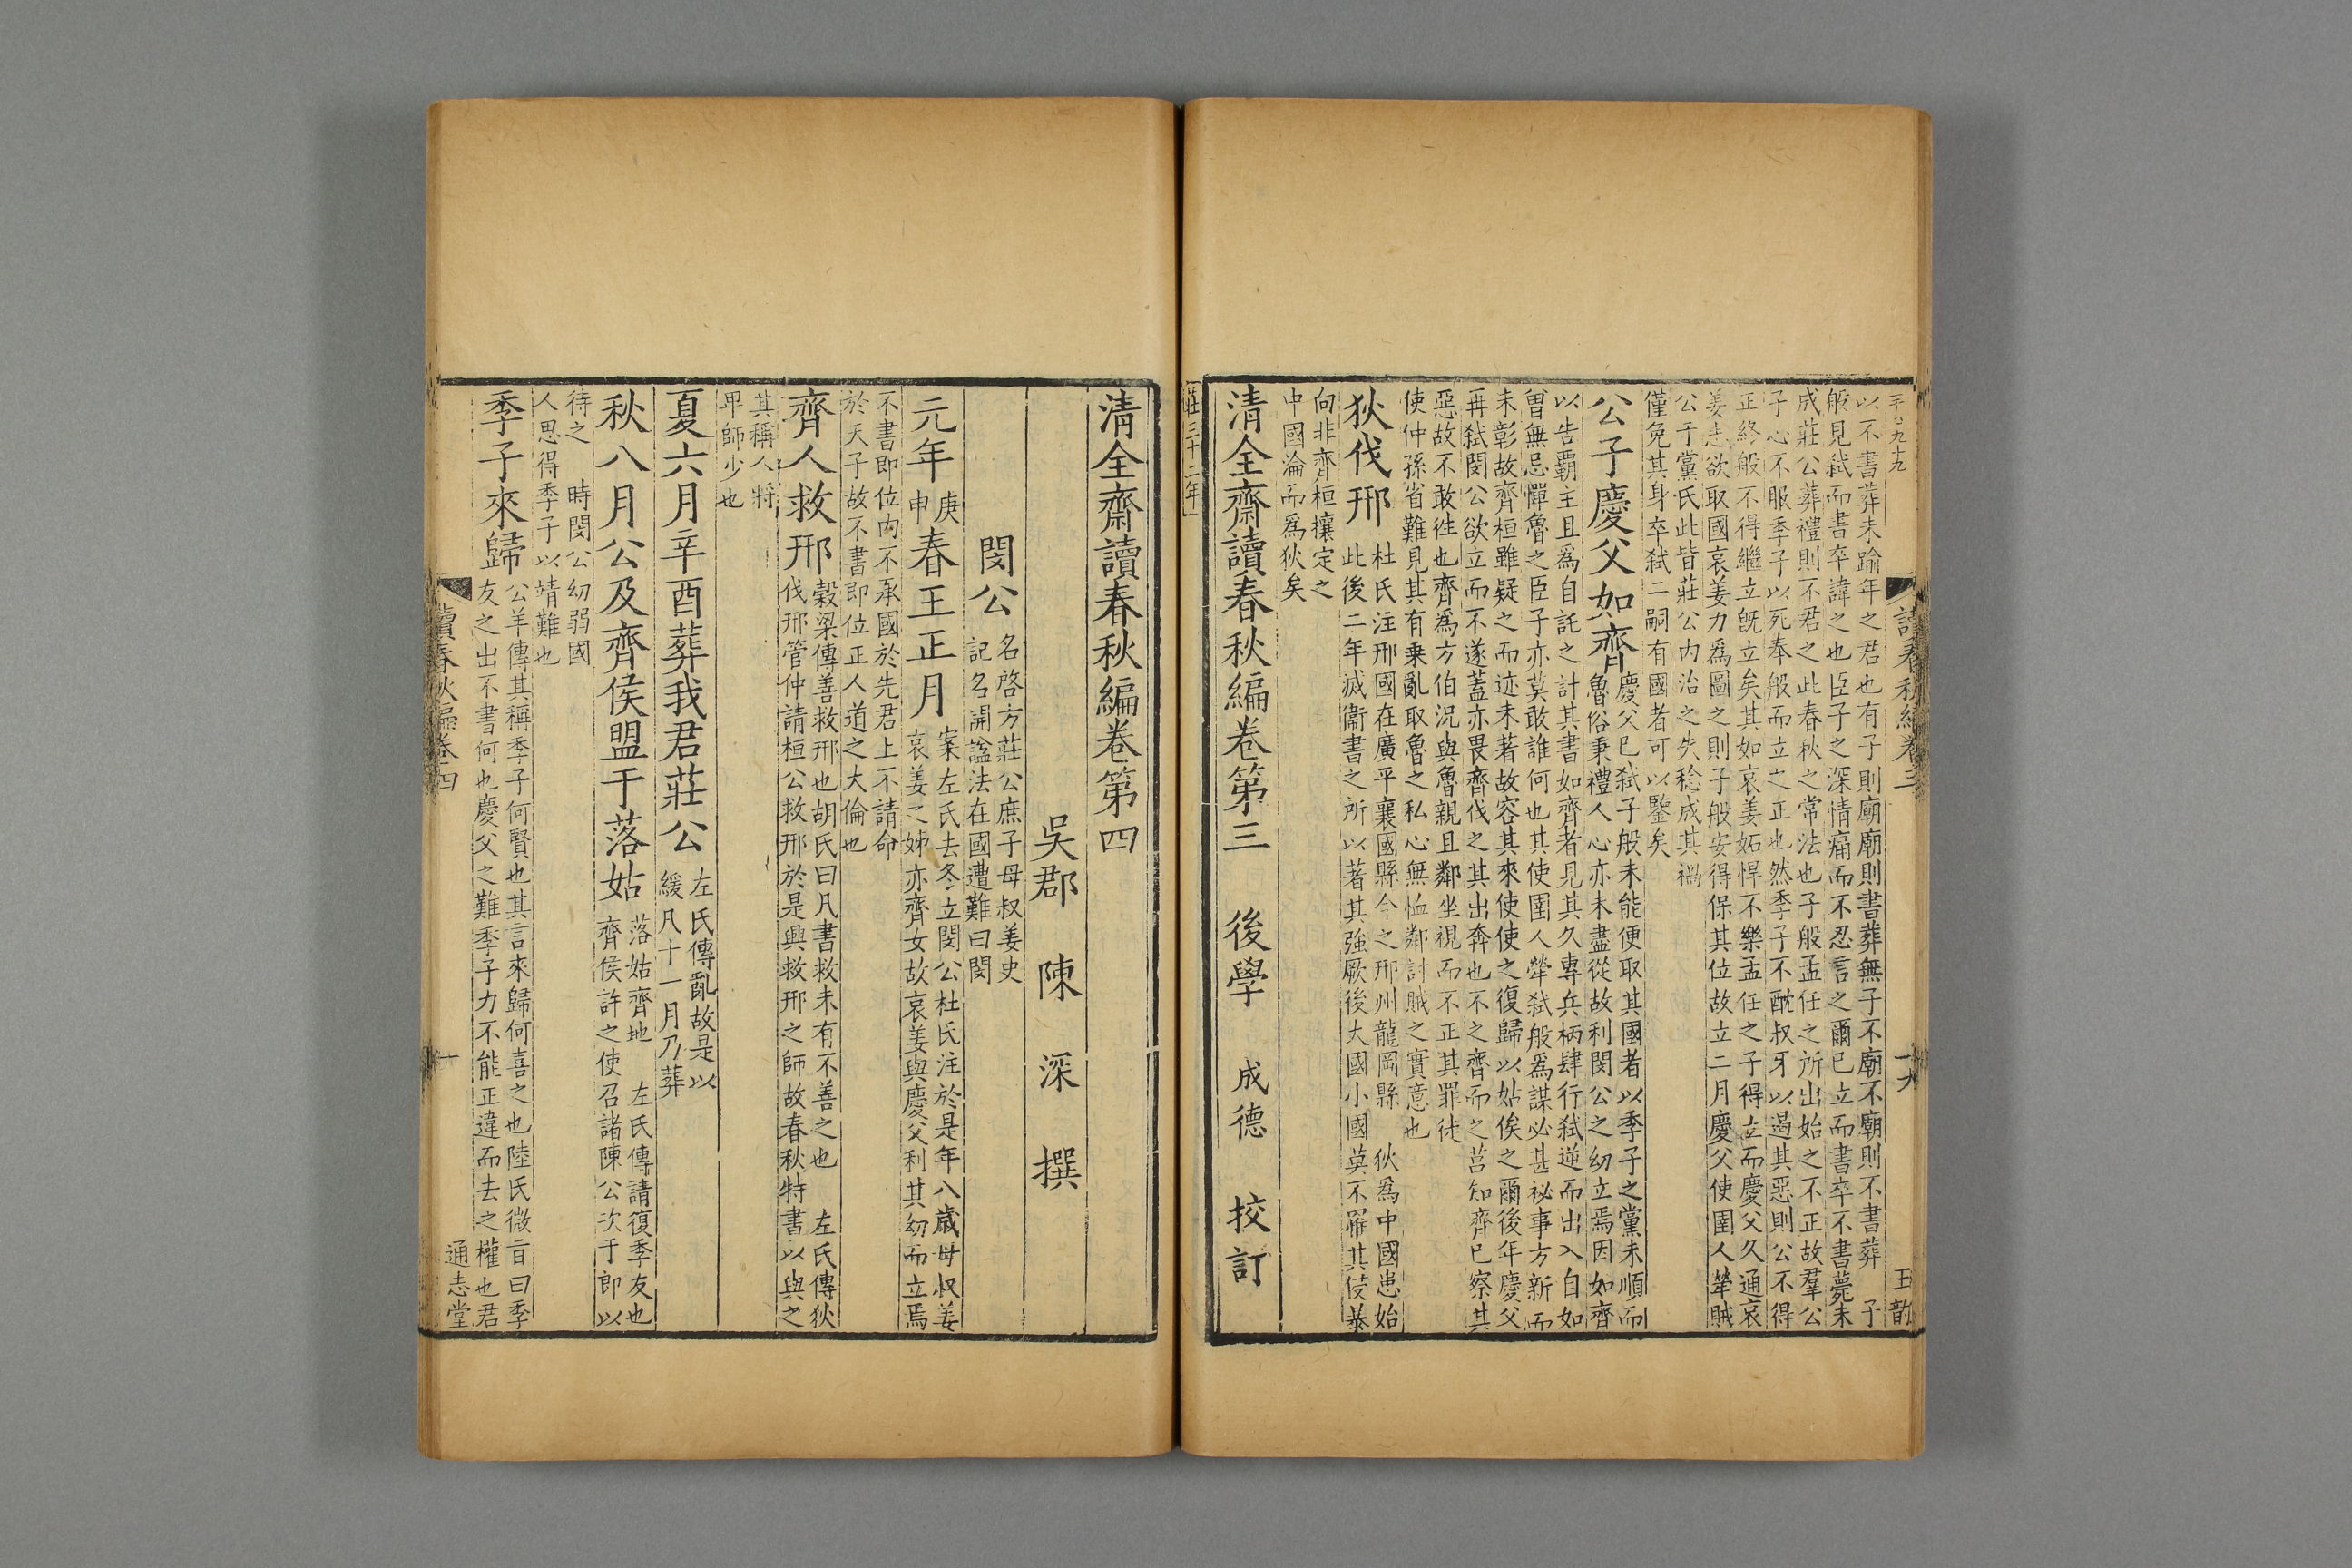 以不書葬未踰年之君也有子則廟廟則書葬無子不廟不廟則不書葬　子
般見弒而書卒諱之也臣子之深情痛而不忍言之爾已立而書卒不書薨未
成莊公葬禮則不君之此春秋之常法也子般孟任之所出始之不正故羣公
子心不服季子以死奉般而立之立也然季子不酖叔牙以遏其惡則公不得
正終般不得繼立旣立矣其如哀姜妬悍不樂孟任之子得立而慶父久通哀
姜志欲取國哀姜力爲圖之則子般安得保其位故立二月慶父使圉人犖賊
公于黨氏此皆莊公内治之失稔成其禍
僅免其身卒弒二嗣有國者可以鑒矣
公子慶父如齊
慶父已弒子般未能便取其國者以季子之黨未順而
魯俗秉禮人心亦未盡從故利閔公之幼立焉因如齊
以告霸主且爲自託之計其書如齊者見其久專兵柄肆行弒逆而出入自如
曾無忌憚魯之臣子亦莫敢誰何也其使圉人犖弒般爲謀必甚祕事方新而
未彰故齊桓雖疑之而迹未著故容其來使使之復歸以姑俟之爾後年慶父
再弒閔公欲立而不遂蓋亦畏齊伐之其出奔也不之齊而之莒知齊已察其
惡故不敢徃也齊爲方伯況與魯親且鄰坐視而不正其罪徒
使仲孫省難見其有乗亂取魯之私心無恤鄰討賊之實意也
狄伐邢
杜氏注邢國在廣平襄國縣今之邢州龍岡縣　狄爲中國患始
此後二年滅衞書之所以著其強厥後大國小國莫不罹其侵暴
向非齊桓攘定之
中國淪而爲狄矣
清全齋讀春秋編卷第三　後學　成德　挍訂
莊三十二年
讀春秋編卷三
十九
清全齋讀春秋編卷第四
吳郡　陳　深　撰
閔公
名啓方莊公庶子母叔姜史
記名開諡法在國遭難曰閔
元年
庚
申
春王正月
案左氏去冬立閔公杜氏注於是年八歳母叔姜
哀姜之姊亦齊女故哀姜與慶父利其幼而立焉
不書即位内不承國於先君上不請命
於天子故不書即位正人道之大倫也
齊人救邢
穀梁傳善救邢也胡氏曰凡書救未有不善之也　左氏傳狄
伐邢管仲請桓公救邢於是興救邢之師故春秋特書以與之
其稱人將
卑師少也
夏六月辛酉葬我君莊公
左氏傳亂故是以
緩凡十一月乃葬
秋八月公及齊侯盟于落姑
落姑齊地　左氏傳請復季友也
齊侯許之使召諸陳公次于郎以
待之　時閔公幼弱國
人思得季子以靖難也
季子來歸
公羊傳其稱季子何賢也其言來歸何喜之也陸氏微旨曰季
友之出不書何也慶父之難季子力不能正違而去之權也君
讀春秋編卷四
一
通志堂